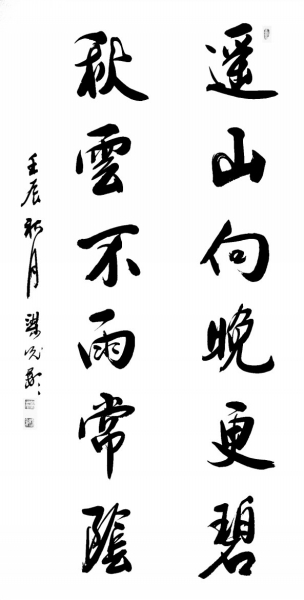 遥山向晚更碧
秋雲不雨常陰
壬辰秋月